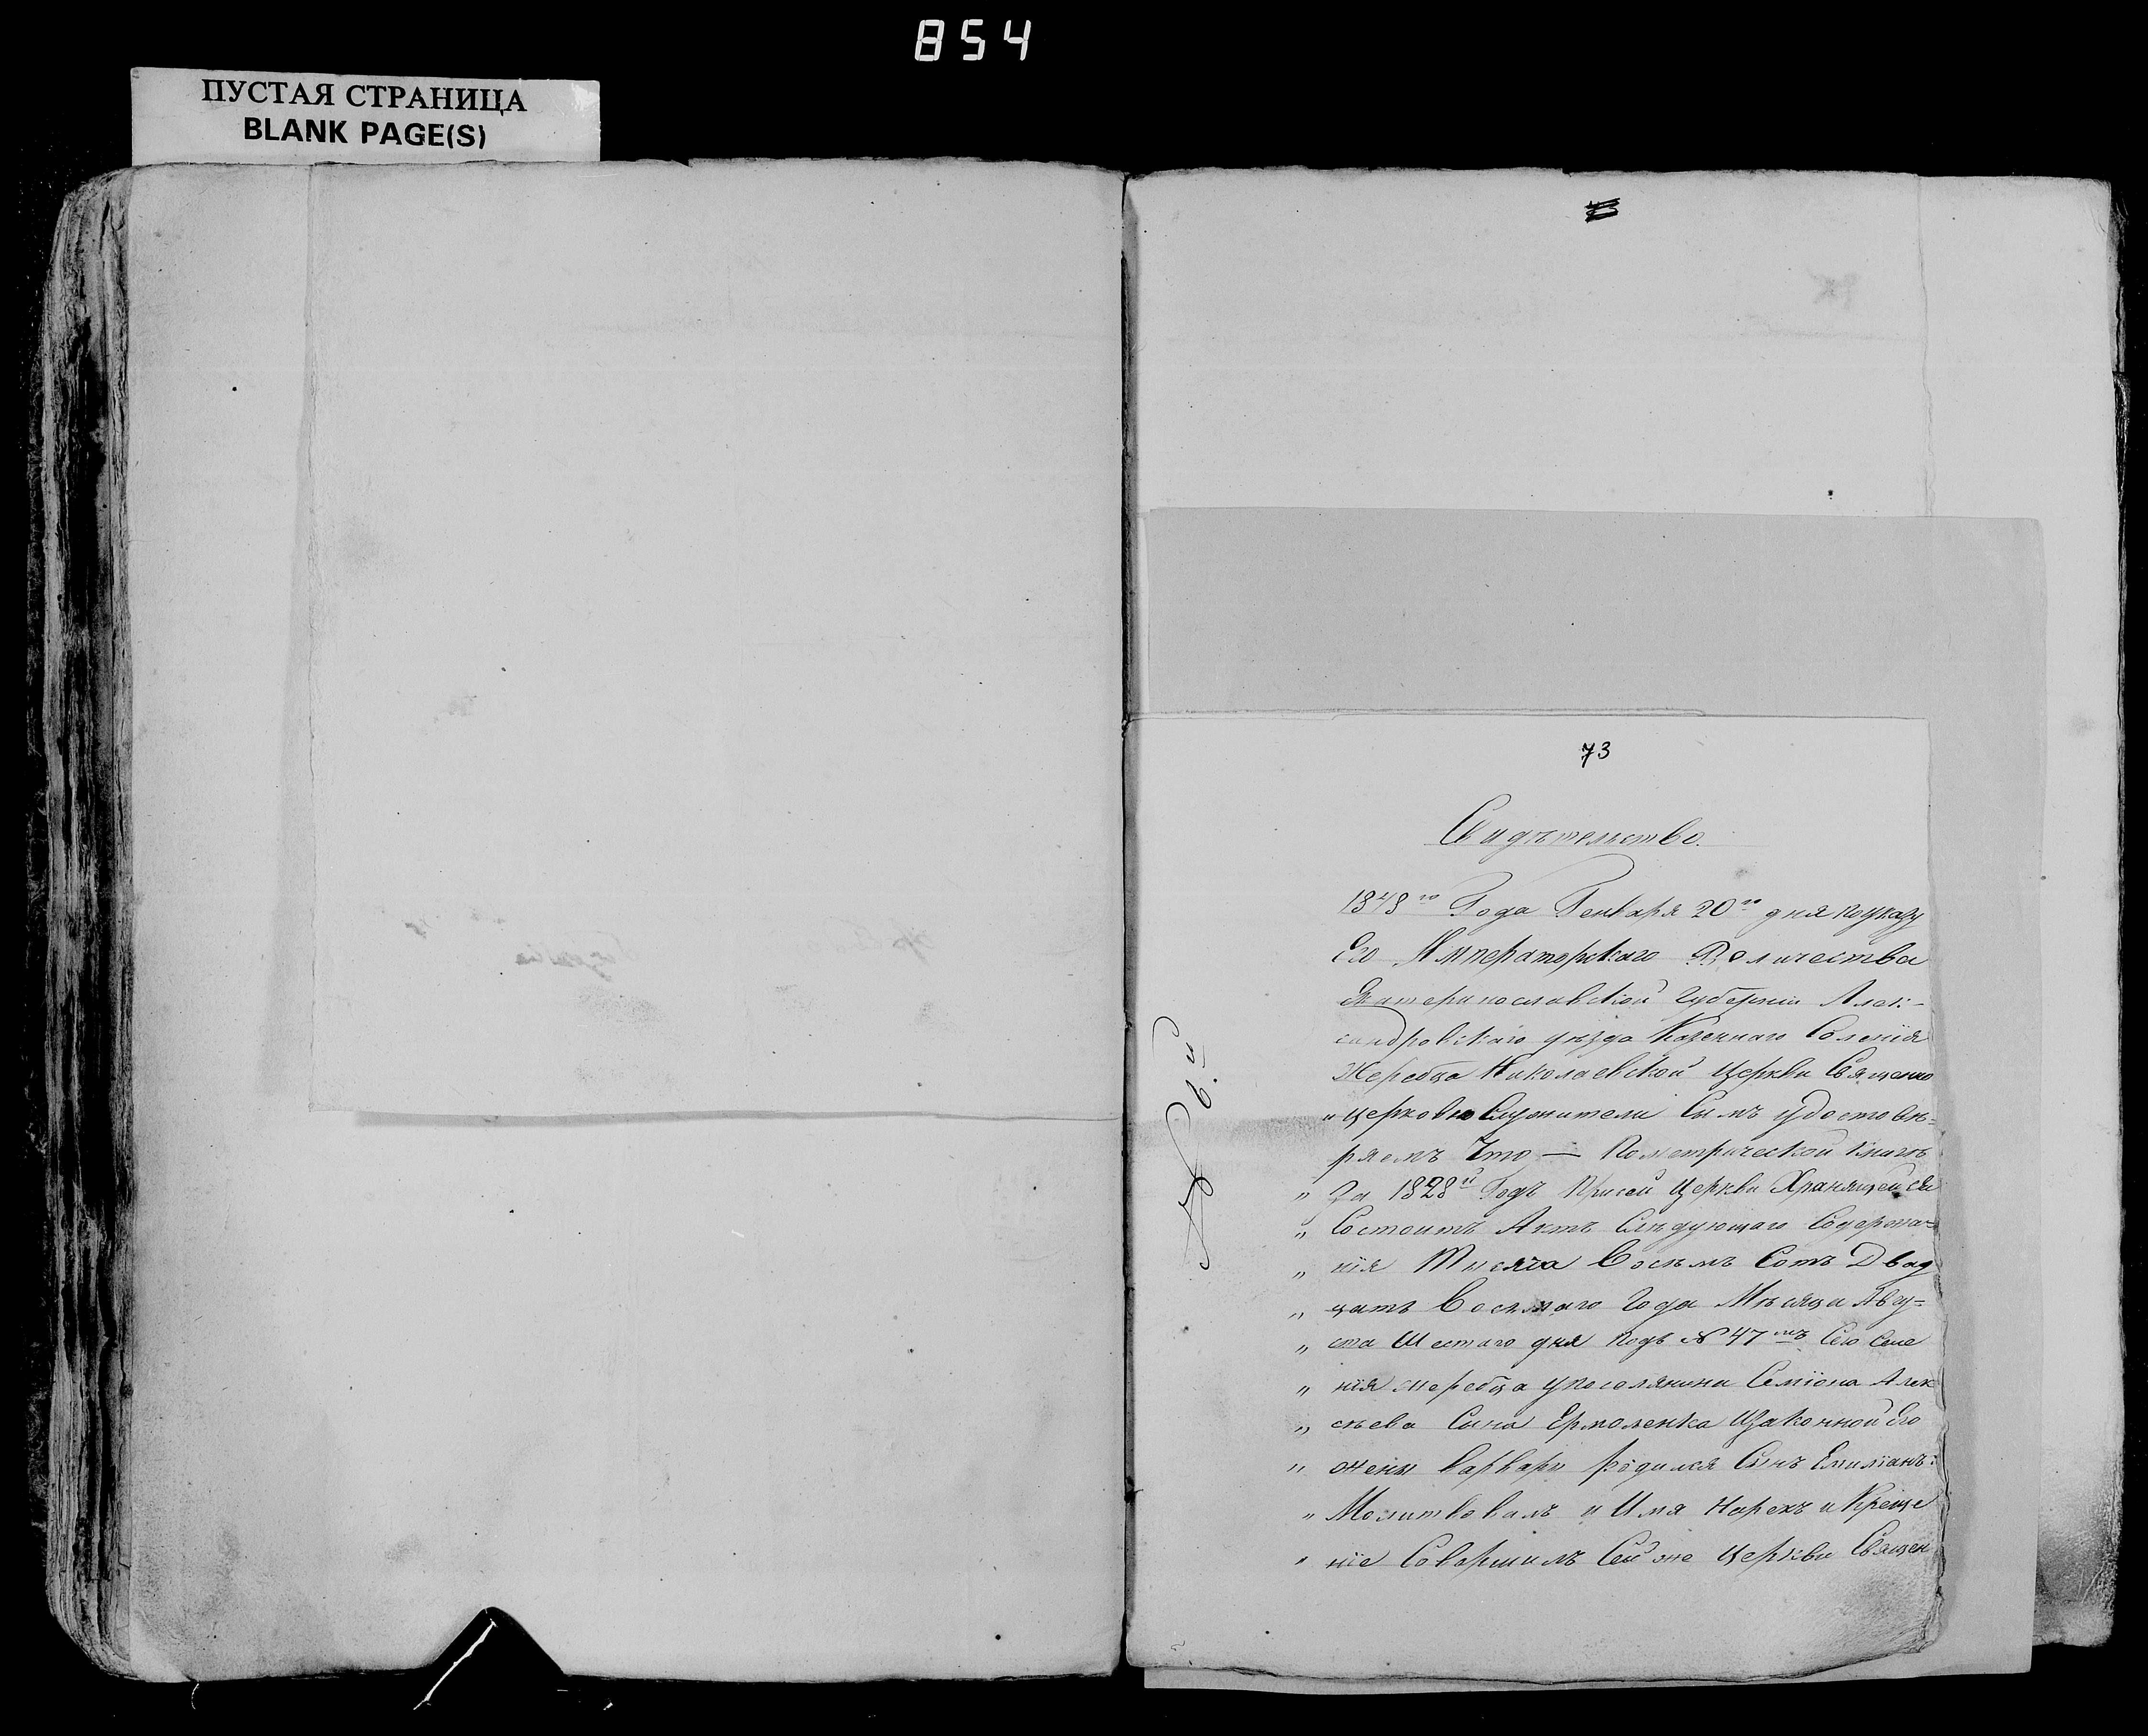 854
ПУСТАЯ СТРАНИЦА
BLANK PAGE(S)
73
Свидѣтельство.
1848го Года Генваря 20го дня по указу
Его Императорскаго Величества
Екатеринославской Губерніи Алек-
сандровскаго уѣзда Казеннаго Селенія
Жеребца Николаевской Церкви Священно
и церковно Служители Симъ удостовѣ=
ряемъ Что — По метрической Книгѣ
„ За 1828й Годъ При сей Церкви Хранящейся
„ Состоитъ Актъ Слѣдующаго Содержа=
„ нія Тысяча Восемъ Сотъ Двад
„ цать Восмаго Года Мѣсяца Авгу=
„ ста Шестаго дня Подъ № 47мъ Сего Селе
„ нія жеребца у поселянина Семіона Алек
„ сѣева Сына Ермоленка И Законной Его
„ жены Варвары Родился Сынъ Емиліанъ:
„ Молитвовалъ и Имя Нарекъ и Креще
„ ніе Совершилъ Сей же Церкви Священ